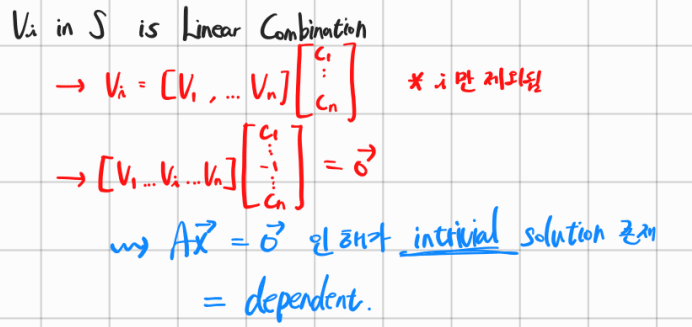 Vi in S is Linear Combination
→ Vi = [V1, ... Vn] [C1 ⋮ Cn] * i만 제외됨
→ [V1 ... Vi ... Vn] [C1 ⋮ -1 ⋮ Cn] = 0⃗
⇝ Ax⃗ = 0⃗ 인 해가 intrivial solution 존재
= dependent.